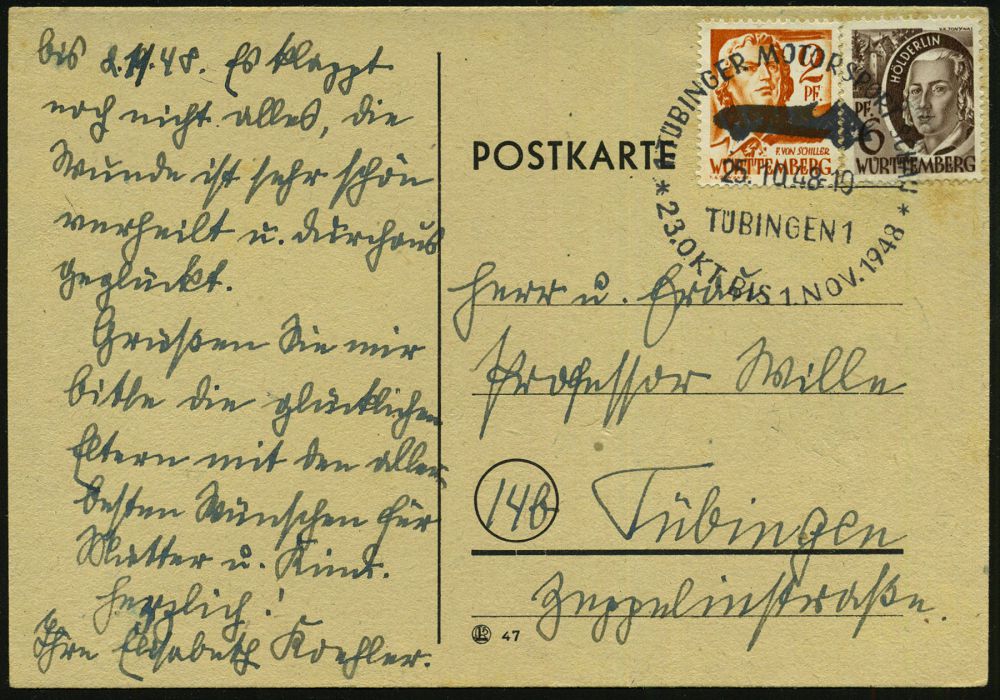 bis 2.11.48. Es klappt
noch nicht alles, die
Wunde ist sehr schön
verheilt u. durchaus
geglückt.
Grüßen Sie mir
bitte die glücklichen
Eltern mit den aller-
besten Wünschen für
Mutter u. Kind.
Herzlich!
Ihre Elisabeth Koehler.
POSTKARTE
2
PF.
F. VON SCHILLER
WÜRTTEMBERG
HÖLDERLIN
PF. 6
WÜRTTEMBERG
TÜBINGER MOTORSPORT
10.48-19
TÜBINGEN 1
* 23.OKT. BIS 1.NOV.1948 *
Herr u. Frau
Professor Wille
14b Tübingen
Zeppelinstraße.
47